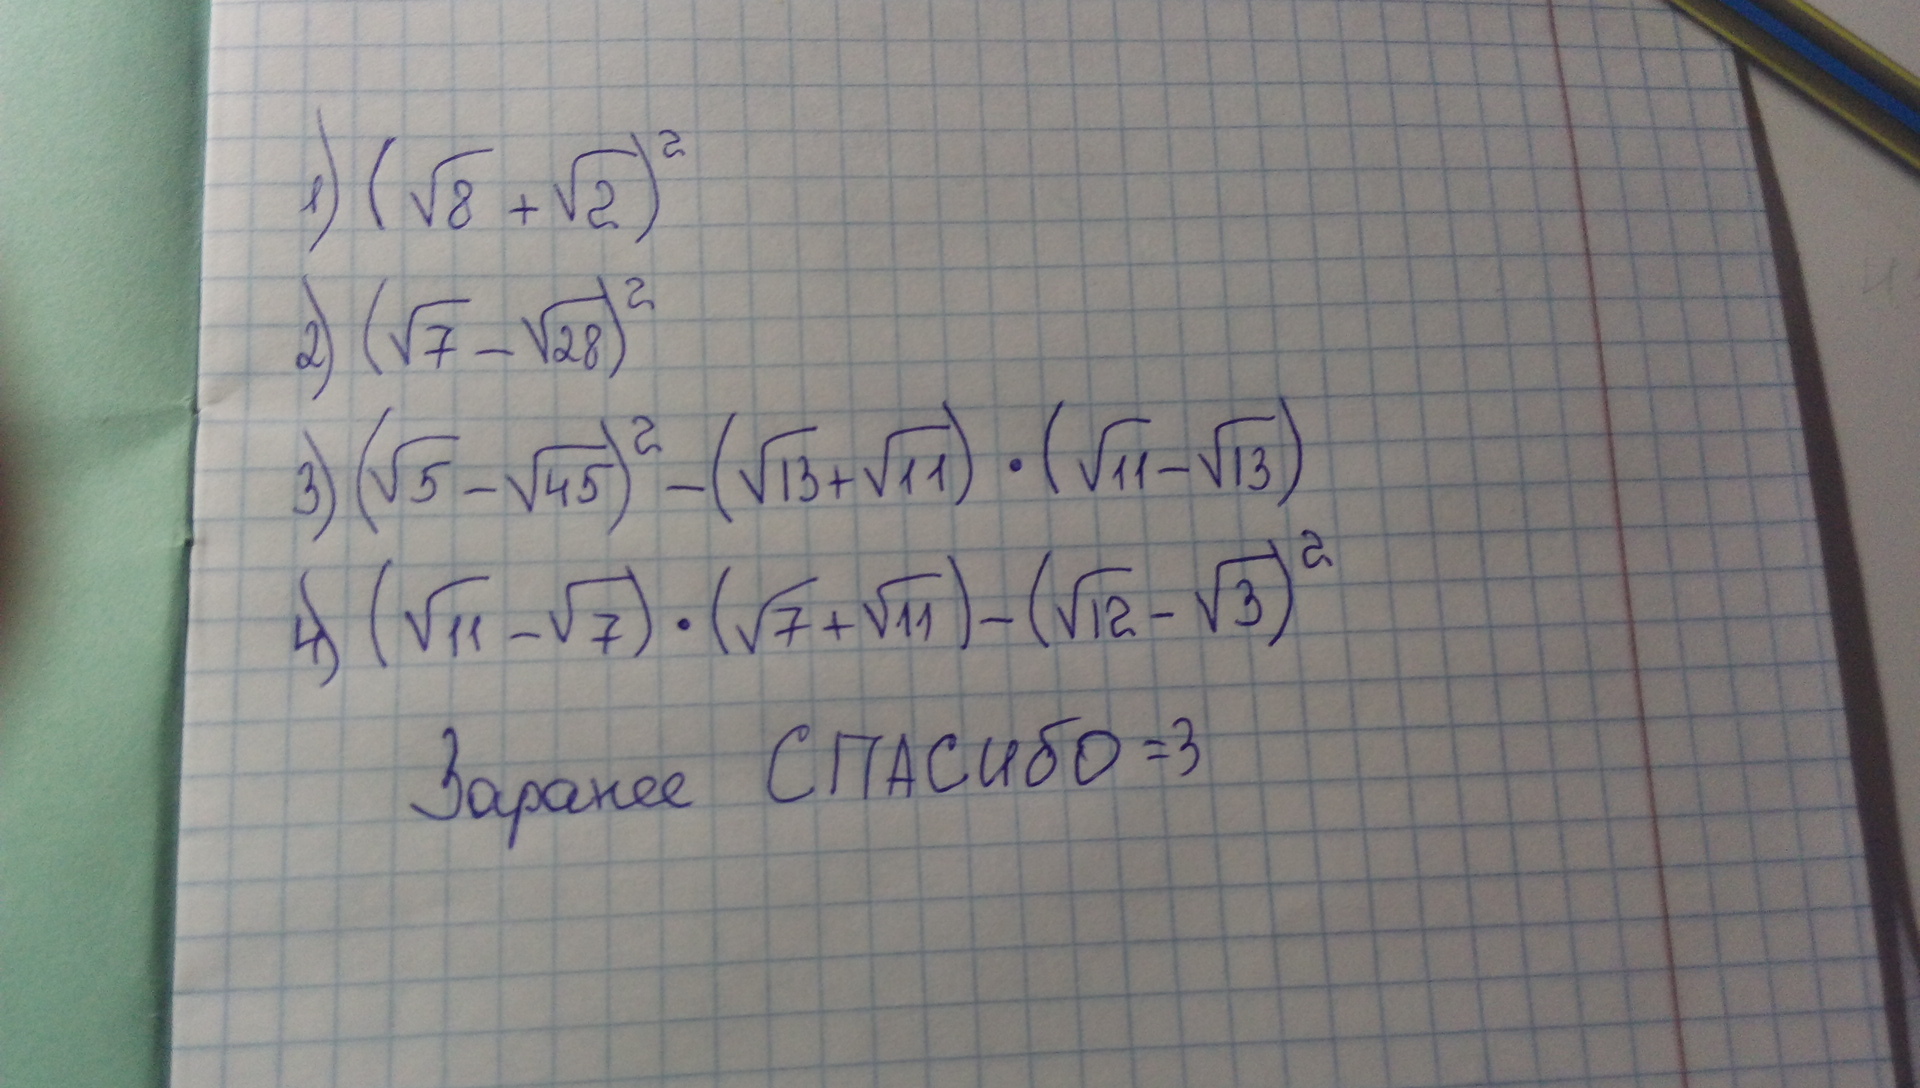 1) (√8 + √2)²
2) (√7 - √28)²
3) (√5 - √45)² - (√13 + √11) · (√11 - √13)
4) (√11 - √7) · (√7 + √11) - (√12 - √3)²
Заранее СПАСИБО =3